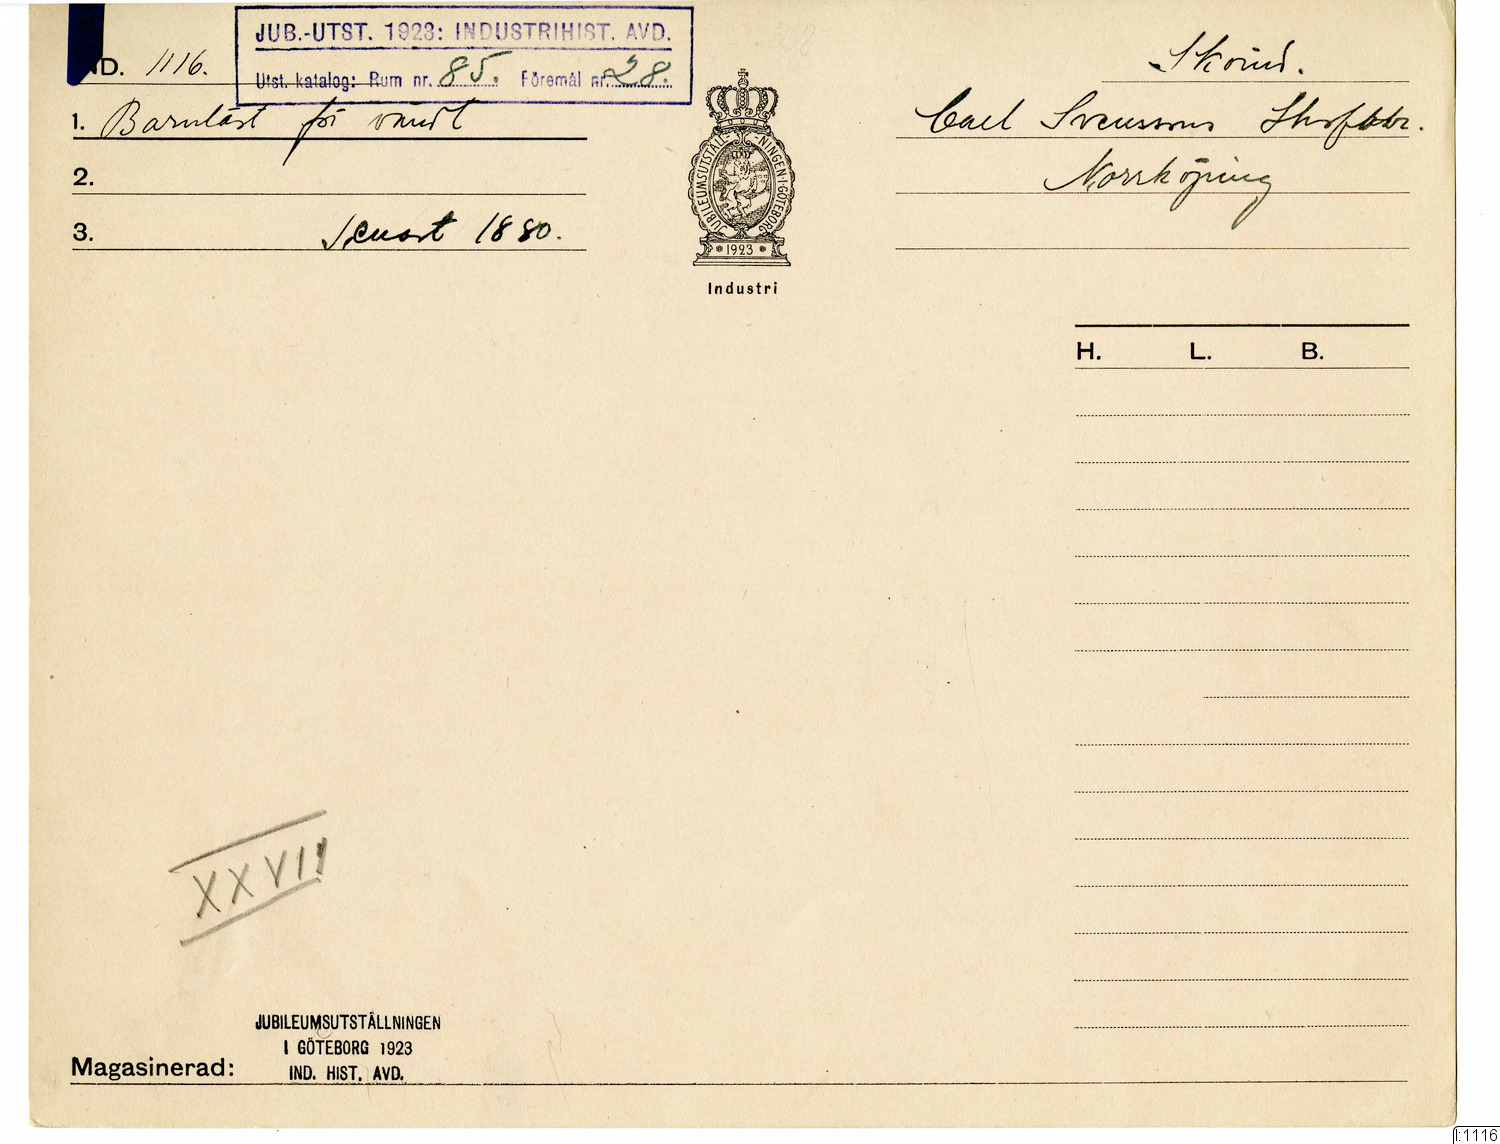 JUB.-UTST. 1923: INDUSTRIHIST. AVD.
Utst. katalog: Rum nr. 85. Föremål nr. 28.
ND. 1116.
1. Barnläst för vändt
2.
3. Senast 1880.
JUBILEUMSUTSTÄLL-NINGEN·I·GÖTEBORG
1923
Industri
Skoind.
Carl Svenssons
Norrköping
H. L. B.
XXVII
JUBILEUMSUTSTÄLLNINGEN
I GÖTEBORG 1923
IND. HIST. AVD.
Magasinerad:
I:1116